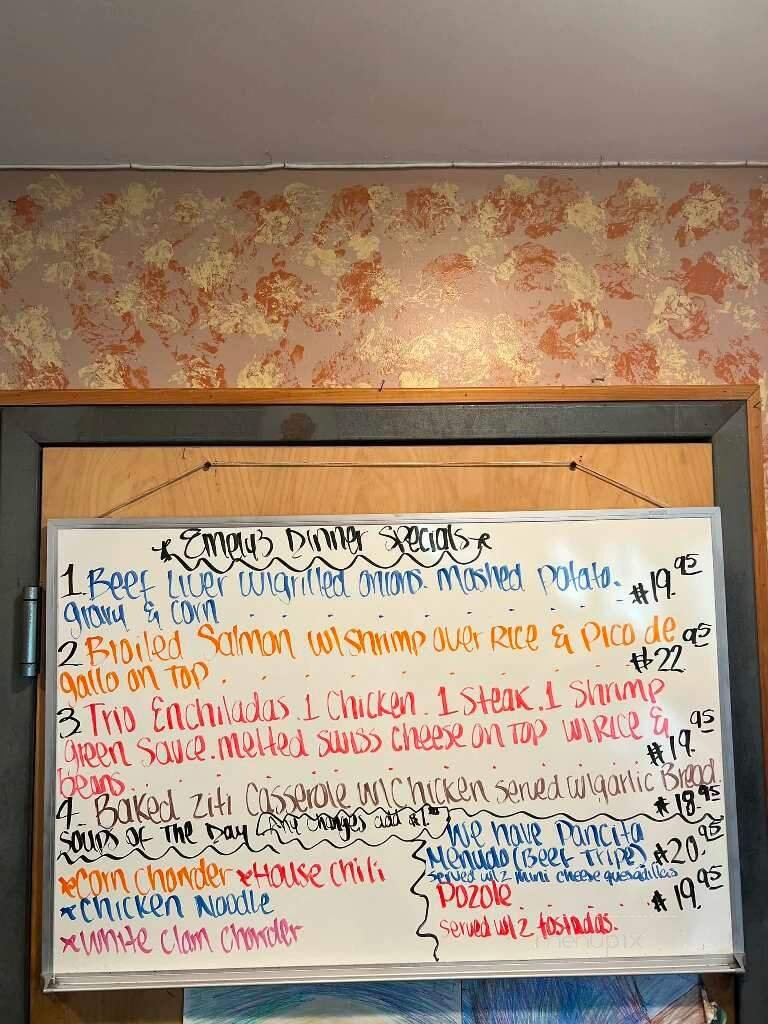 ★Emely's Dinner Specials★
1. Beef Liver w/grilled onions. mashed potato.
gravy & corn . . . . . . . . . . $19.95
2 Broiled Salmon w/shrimp over Rice & Pico de
gallo on Top . . . . . . . . . . $22.95
3 Trio Enchiladas. 1 Chicken. 1 Steak. 1 Shrimp
green sauce. melted swiss cheese on Top w/Rice &
beans . . . . . . . . . . $19.95
4. Baked Ziti Casserole w/Chicken served w/garlic Bread.
$18.95
Soups of The Day (Any changes add $1.
★Corn Chowder ★House Chili
★Chicken Noodle
★White Clam Chowder
We have Pancita
Menudo (Beef Tripe) $20.95
served w/2 mini cheese quesadillas
Pozole $19.95
served w/2 tostadas.
menupix